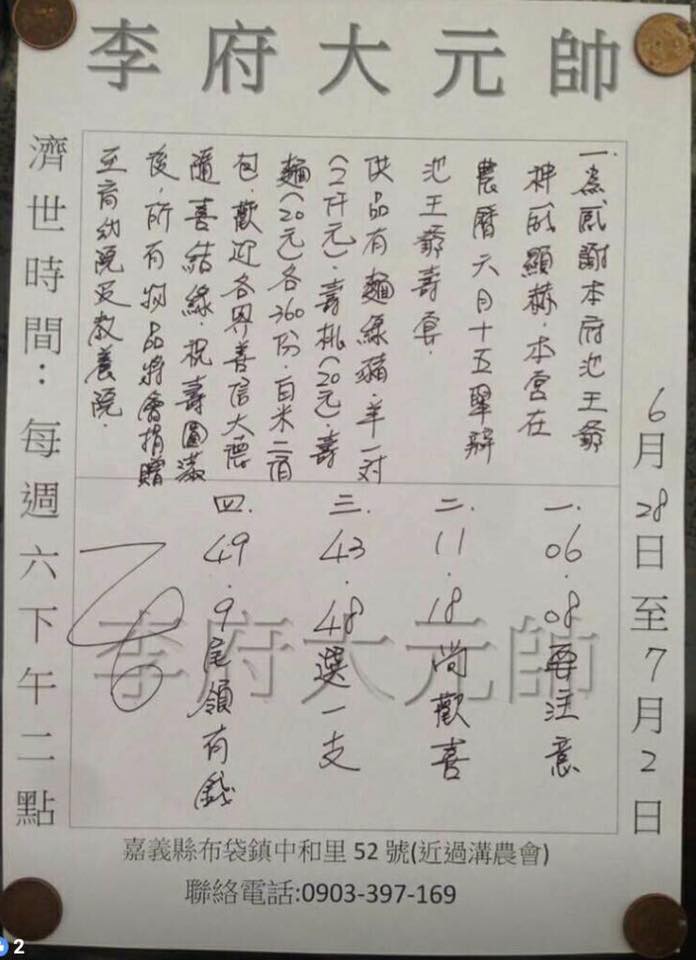 李府大元帥
6月28日至7月2日
一.為感謝本府池王爺
神威顯赫.本宮在
農曆六月十五舉辦
池王爺壽宴.
供品有麵線豬.羊一對
(2仟元).壽桃(20元).壽
麵(20元)各360份.白米二百
包.歡迎各界善信大德
隨喜結緣.祝壽圓滿
後.所有物品將會捐贈
至育幼院及教養院.
一.06.08要注意
二.11.18尚歡喜
三.43.48選一支
四.49.9尾領有錢
李府大元帥
濟世時間:每週六下午二點
嘉義縣布袋鎮中和里52號(近過溝農會)
聯絡電話:0903-397-169
2